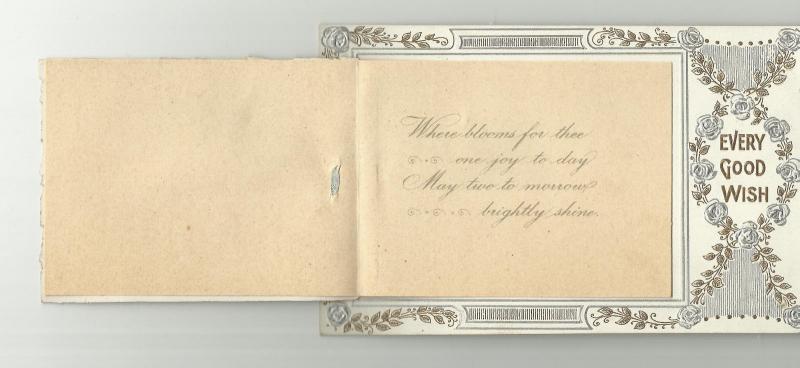 Where blooms for thee
one joy to day
May two to morrow
brightly shine.
EVERY
GOOD
WISH